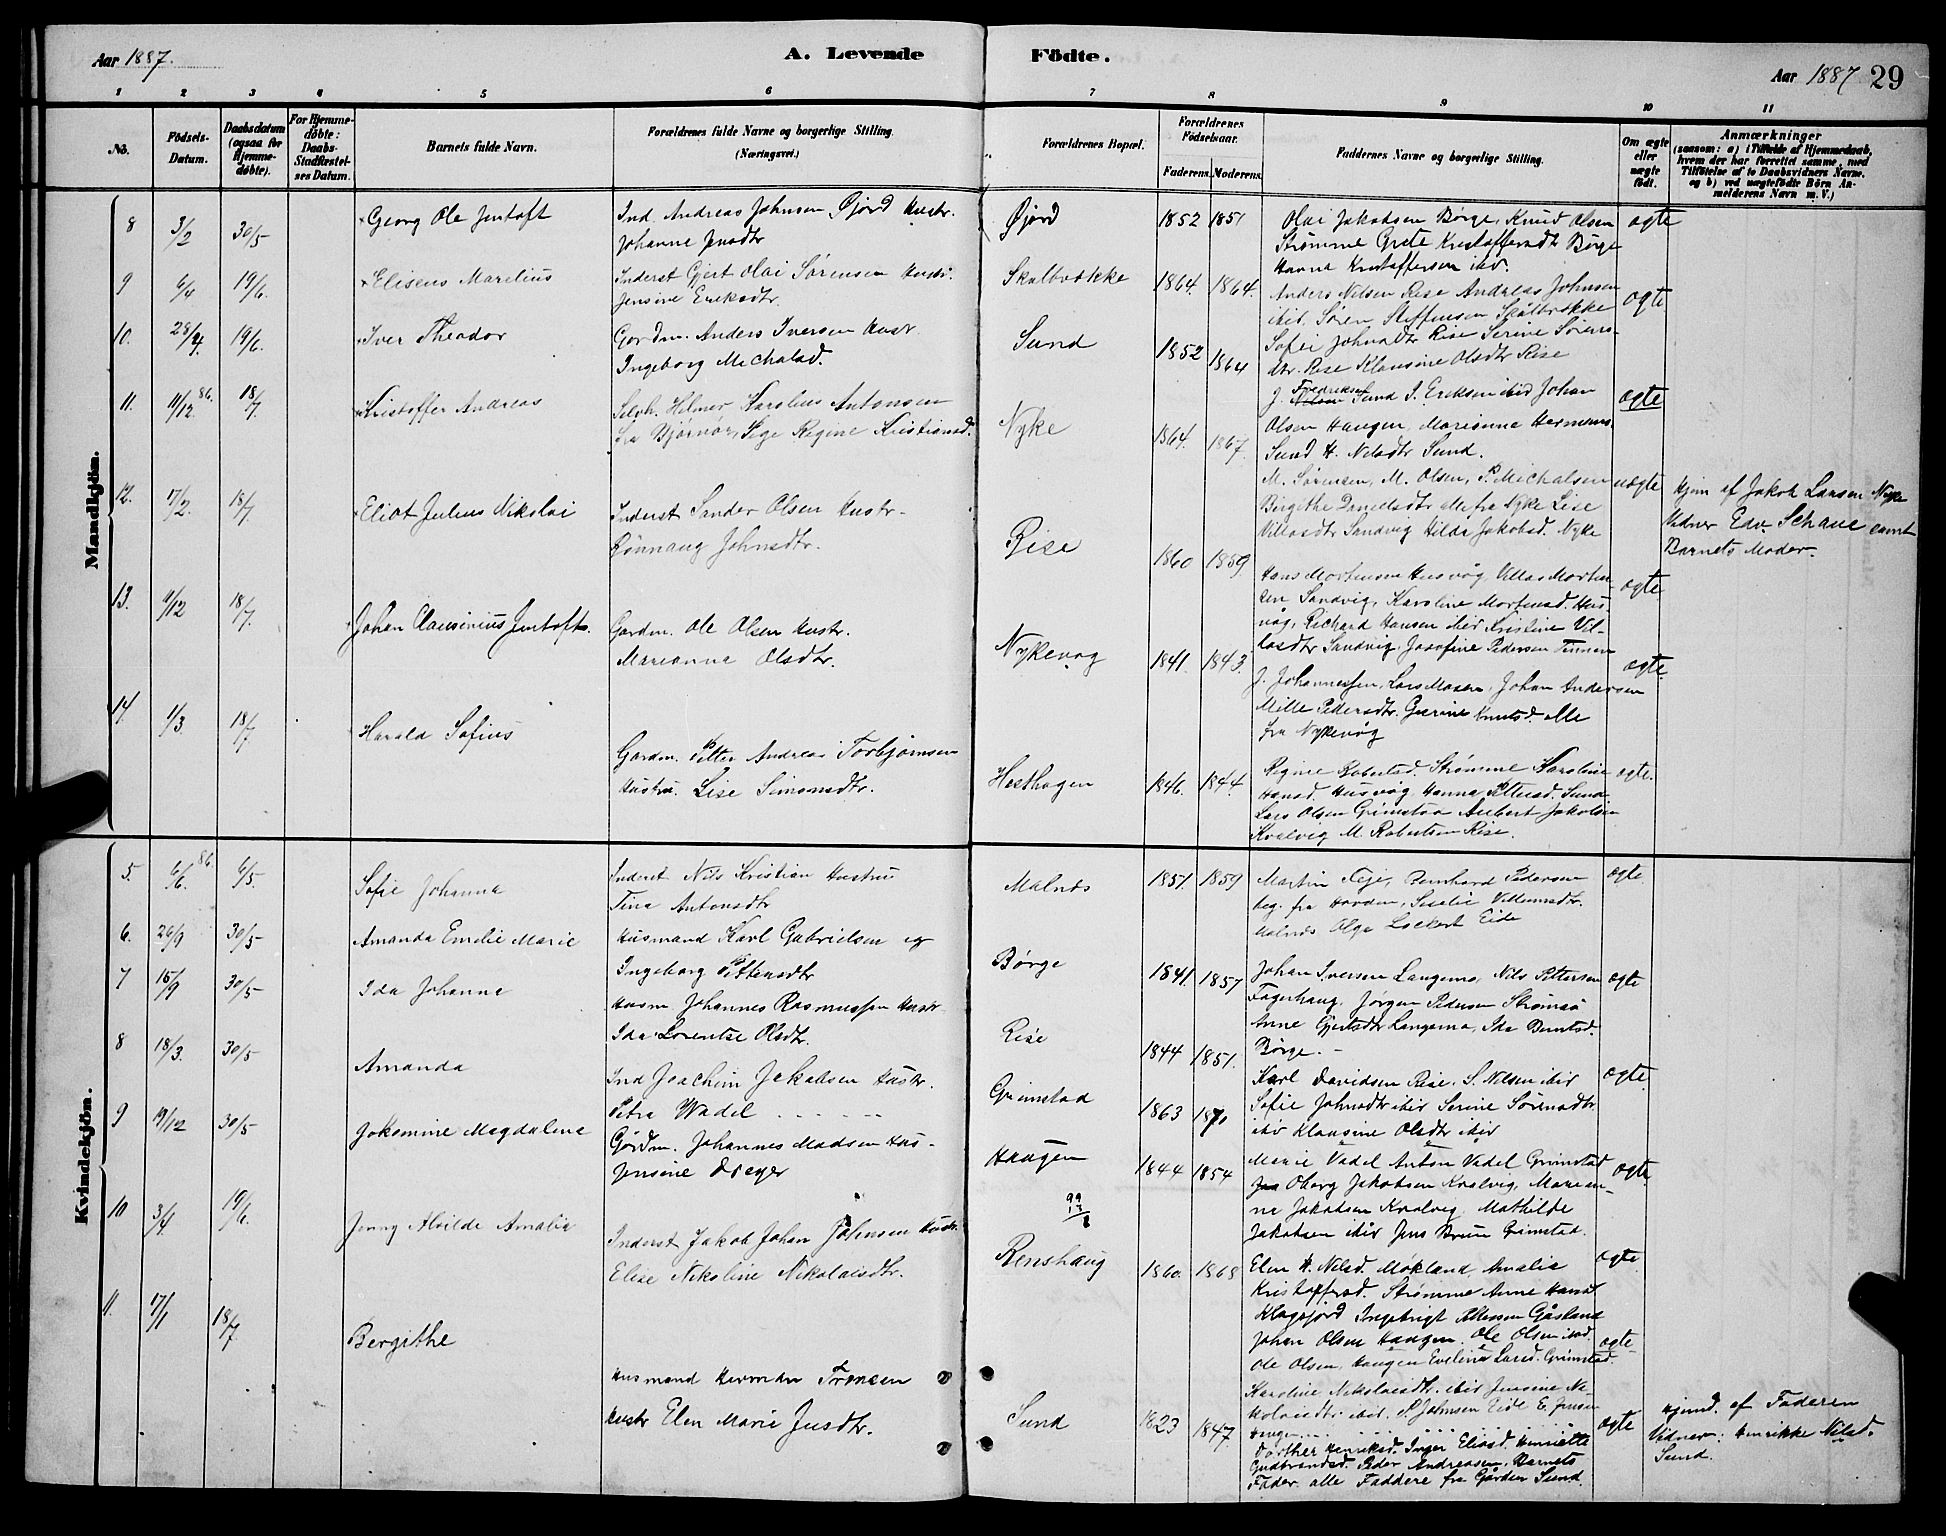 Aar 1887.
A. Levende
Födte.
Aar 1887 29
1 2 3 4 5 6 7 8 9 10 11
No.
Födsels-
Datum.
Daabsdatum
(ogsaa for
Hjemme-
döbte).
For Hjemme-
döbte:
Daabs-
Stadfæstel-
ses Datum.
Barnets fulde Navn.
Forældrenes fulde Navne og borgerlige Stilling.
(Næringsvei.)
Forældrenes Bopæl.
Forældrenes
Födselsaar.
Faderens. Moderens.
Faddernes Navne og borgerlige Stilling.
Om ægte
eller
uægte
födt.
Anmærkninger
(saasom: a) i Tilfælde af Hjemmedaab,
hvem der har forrettet samme, med
Tilföielse af to Daabsvidners Navne,
og b) ved uægtefödte Börn An-
melderens Navn m. V.)
Mandkjön.
8 3/2 30/5 Georg Ole Jentoft
Ind. Andreas Johnsen Øjord Hustr.
Johanne Jensdtr
Øjord 1852 1851
Olai Jakobsen Børge, Knud Olsen
Strømme Grete Kristoffersdtr Børge
Hanna Kristoffersen ibid.
ægte
9 6/4 19/6. Eliseus Marelius
Inderst Gjert Olai Sørensen Hustr.
Jensine Eriksdtr.
Skalbrække 1864. 1864.
Anders Nilsen Rise Andreas Johnsen
ibid. Søren Steffensen Skalbrække
Sofie Johnsdtr Rise Serine Sørens-
dtr. Rise Klausine Olsdtr Rise
ægte
10. 28/4. 19/6. Iver Theodor
Gardm. Anders Iversen Hustr.
Ingeborg Michalsd.
Sund 1852 1864
J. Fredriksen Sund J. Eriksen ibid Johan
Olsen Haugen, Marianne Hermans.
Sund H. Nilsdtr Sund.
ægte
11. 11/12 86. 18/7 Kristoffer Andreas
Selph. Hilmer Karolius Antonsen
fra Bjørnør, Pige Regine Kristiansd.
Nyke 1864. 1867.
M. Sørensen, M. Olsen, P. Michalsen
Birgithe Danielsdtr alle fra Nyke Lise
Villasdtr Sandvig Hilda Jakobsd. Nyke
uægte
Hjem af Jakob Larsen Nyke
Vidner Edv Schave samt
Barnets Moder.
12. 17/2. 18/7. Eliot Julius Nikolai
Inderst Sander Olsen Hustr.
Rønnaug Johnsdtr.
Rise 1860 1859
Hans Mortensen Husvåg, Villas Morten-
sen Sandvig, Karoline Mortensd. Hus-
våg, Richard Hansen ibid Kristine Vil-
lasdtr Sandvig, Josefine Pedersen Tinnen
ægte
13. 9/12 18/7. Johan Clausinius Jentoft.
Gardm. Ole Olsen Hustr.
Marianna Olsdtr.
Nykevåg 1841. 1843.
J. Johannessen, Lars Mosen, Johan Andersen
Mille Pedersdtr. Gurine Knutsd. alle
fra Nykevåg
ægte.
14. 1/3. 18/7 Harald Sofius
Gardm. Petter Andreas Torbjørnsen
Hustru. Lise Simonsdtr.
Hesthagen 1846. 1844.
Regine Robertsd. Strømme Karoline
Hansd. Husvåg, Hanna Pettersd. Sund
Lars Olsen Grimstad Anbert Jakobsen
Kvalvig M. Robertsen Rise.
ægte.
Kvindekjön.
5. 6/6. 86. 6/5. Sofie Johanna
Inderst Nils Kristian Hustru
Tina Antonsdtr
Malnes 1851. 1859
Martin Teje, Bernhard Pedersen
beg. fra Hovden, Seselie Villumsdtr.
Malnes Olga Lockert Eide
ægte
6. 26/9 30/5 Amanda Emilie Marie
Husmand Karl Gabrielsen og
Ingeborg Pettersdtr
Børge 1841. 1857
Johan Iversen Langemo, Nils Pettersen
Fagerhaug, Jørgen Pedersen Strømsø
Anne Gjertsdtr Langemo, Ida Berntsd.
Børge. -
ægte
7 15/9 30/5 Ida Johanne
Husm Johannes Rasmussen Hustr
Ida Lorentse Olsdtr.
Rise 1844 1851.
Karl Davidsen Rise. S. Nilsen ibid
Sofie Johnsdtr ibid Serine Sørensdtr.
ibid Klausine Olsdtr ibid
ægte
8 18/3. 30/5 Amanda
Ind Joachim Jakobsen Hustr.
Petra Wadel
Grimstad 1863 1870
Marie Vadel Anton Vadel Grimstad
Oberg Jakobsen Kvalvig, Marian-
ne Jakobsen Kvalvig. Mathilde
Jakobsen ibid Jens Bruun Grimstad.
ægte
9 19/12 30/5 Jakomine Magdalena
Gårdm. Johannes Madsen Hus-
Jensine Dreyer
Haugen 1844 1854
99
13
/2
Elen H. Nilsd. Møkland Amalie
Kristoffersd. Strømme Anne Hansd
Klogsjord Ingebrigt Pettersen Gåsland
Johan Olsen Haugen. Ole Olsen ibid.
Ole Olsen, Haugen Eveline Larsd. Grimstad.
ægte
10 3/4 19/6. Jenny Alvilde Amalia
Inderst Jakob Johan Johnsen Hustr.
Elise Nikoline Nikolaisdtr.
Renshaug 1860. 1868
Karoline Nikolaisdtr. ibid Jensine Ni-
kolaisdtr. ibid. P. Johnsen Eide E. Jensen
Haugen
ægte
11. 17/1 18/7 Bergithe
Husmand Herman Fransen
Hustr Elen Marie Jensdtr.
Sund 1823 1847.
Dorthea Henriksd. Inger Eliasd. Henriette
Gudbrandsd. Peder Andreasen, Barnets
Fader. alle Faddere fra Gården Sund.
ægte
Hjemd. af Faderen
Vidner: Henrikke Nilsd.
Sund.